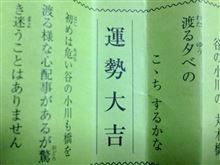 谷の川の丸
渡る夕べの
こゝち するかな
運勢大吉
初めは危い谷の小川も橋を
渡る様な心配事があるが驚
き迷うことはありません